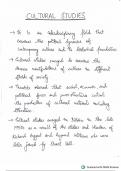 CULTURAL STUDIES
→ It is an interdisciplinary field that
examines the political dynamics of
contemporary culture and its historical foundations
→ Cultural studies emerged to examine the
diverse manifestations of culture in different
spheres of society
→ Theorists observed that social, economic, and
political forces and power structures control
the production of cultural materials including
literature.
→ Cultural studies emerged in Britain in the late
1950s as a result of the studies and theories of
Richard Hoggart and Raymond Williams who were
later joined by Stuart Hall.